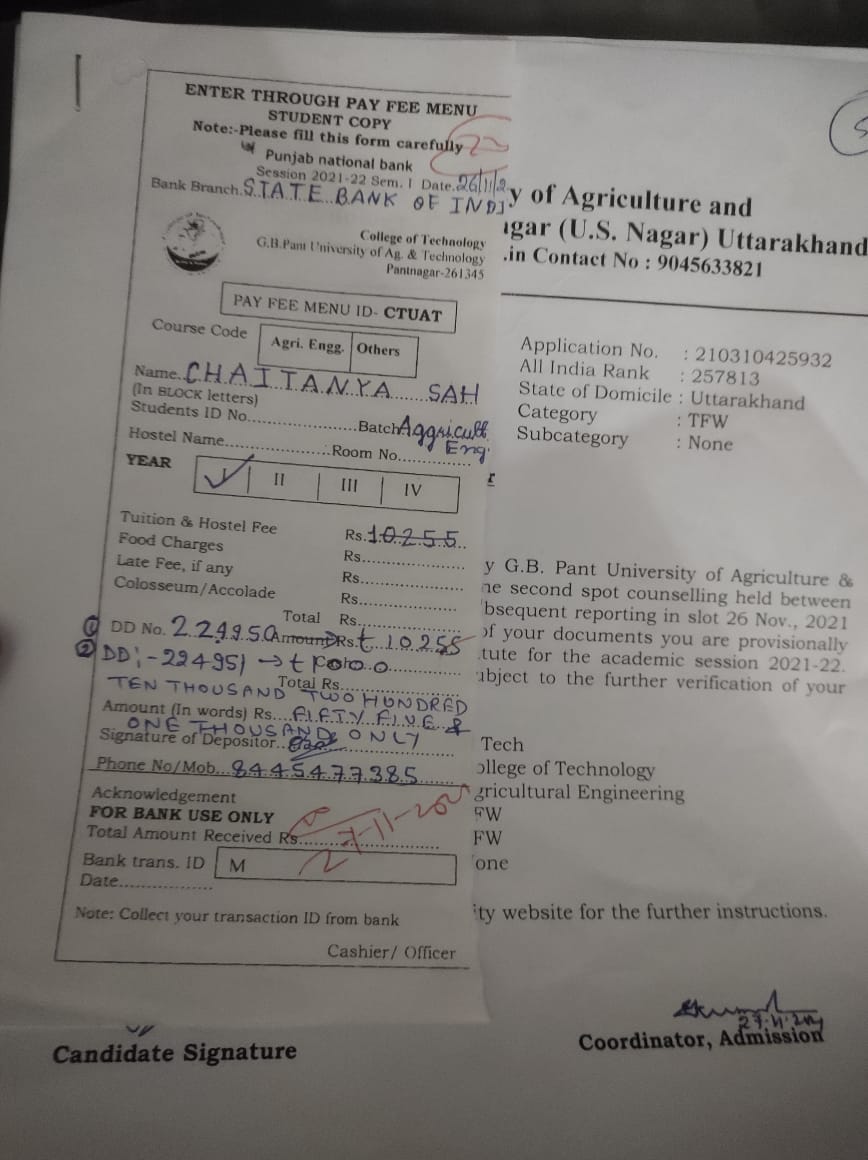 ENTER THROUGH PAY FEE MENU
STUDENT COPY
Note:-Please fill this form carefully
Punjab national bank
Session 2021-22 Sem. I Date.26/11/2
Bank Branch.STATE BANK OF INDI
College of Technology
G.B.Pant University of Ag. & Technology
Pantnagar-261345
PAY FEE MENU ID- CTUAT
Course Code
Agri. Engg. Others
Name.CHAITANYA SAH
(In BLOCK letters)
Students ID No. Batch.Aggricult
Eng.
Hostel Name. Room No.
YEAR
I II III IV
Tuition & Hostel Fee Rs.10255
Food Charges Rs.
Late Fee, if any Rs.
Colosseum/Accolade Rs.
Total Rs.
① DD No. 224950 Amount Rs. 10255
② DD:- 224951 →
Total Rs.
TEN THOUSAND TWO HUNDRED
Amount (In words) Rs. FIFTY FIVE &
ONE THOUSAND ONLY
Signature of Depositor
Phone No/Mob. 8445477385
Acknowledgement
FOR BANK USE ONLY
Total Amount Received Rs.
27-11-202
Bank trans. ID M
Date.
Note: Collect your transaction ID from bank
Cashier/ Officer
y of Agriculture and
gar (U.S. Nagar) Uttarakhand
.in Contact No : 9045633821
Application No. : 210310425932
All India Rank : 257813
State of Domicile : Uttarakhand
Category : TFW
Subcategory : None
y G.B. Pant University of Agriculture &
ne second spot counselling held between
bsequent reporting in slot 26 Nov., 2021
of your documents you are provisionally
tute for the academic session 2021-22.
ubject to the further verification of your
Tech
ollege of Technology
gricultural Engineering
FW
FW
one
ity website for the further instructions.
Candidate Signature
Coordinator, Admission